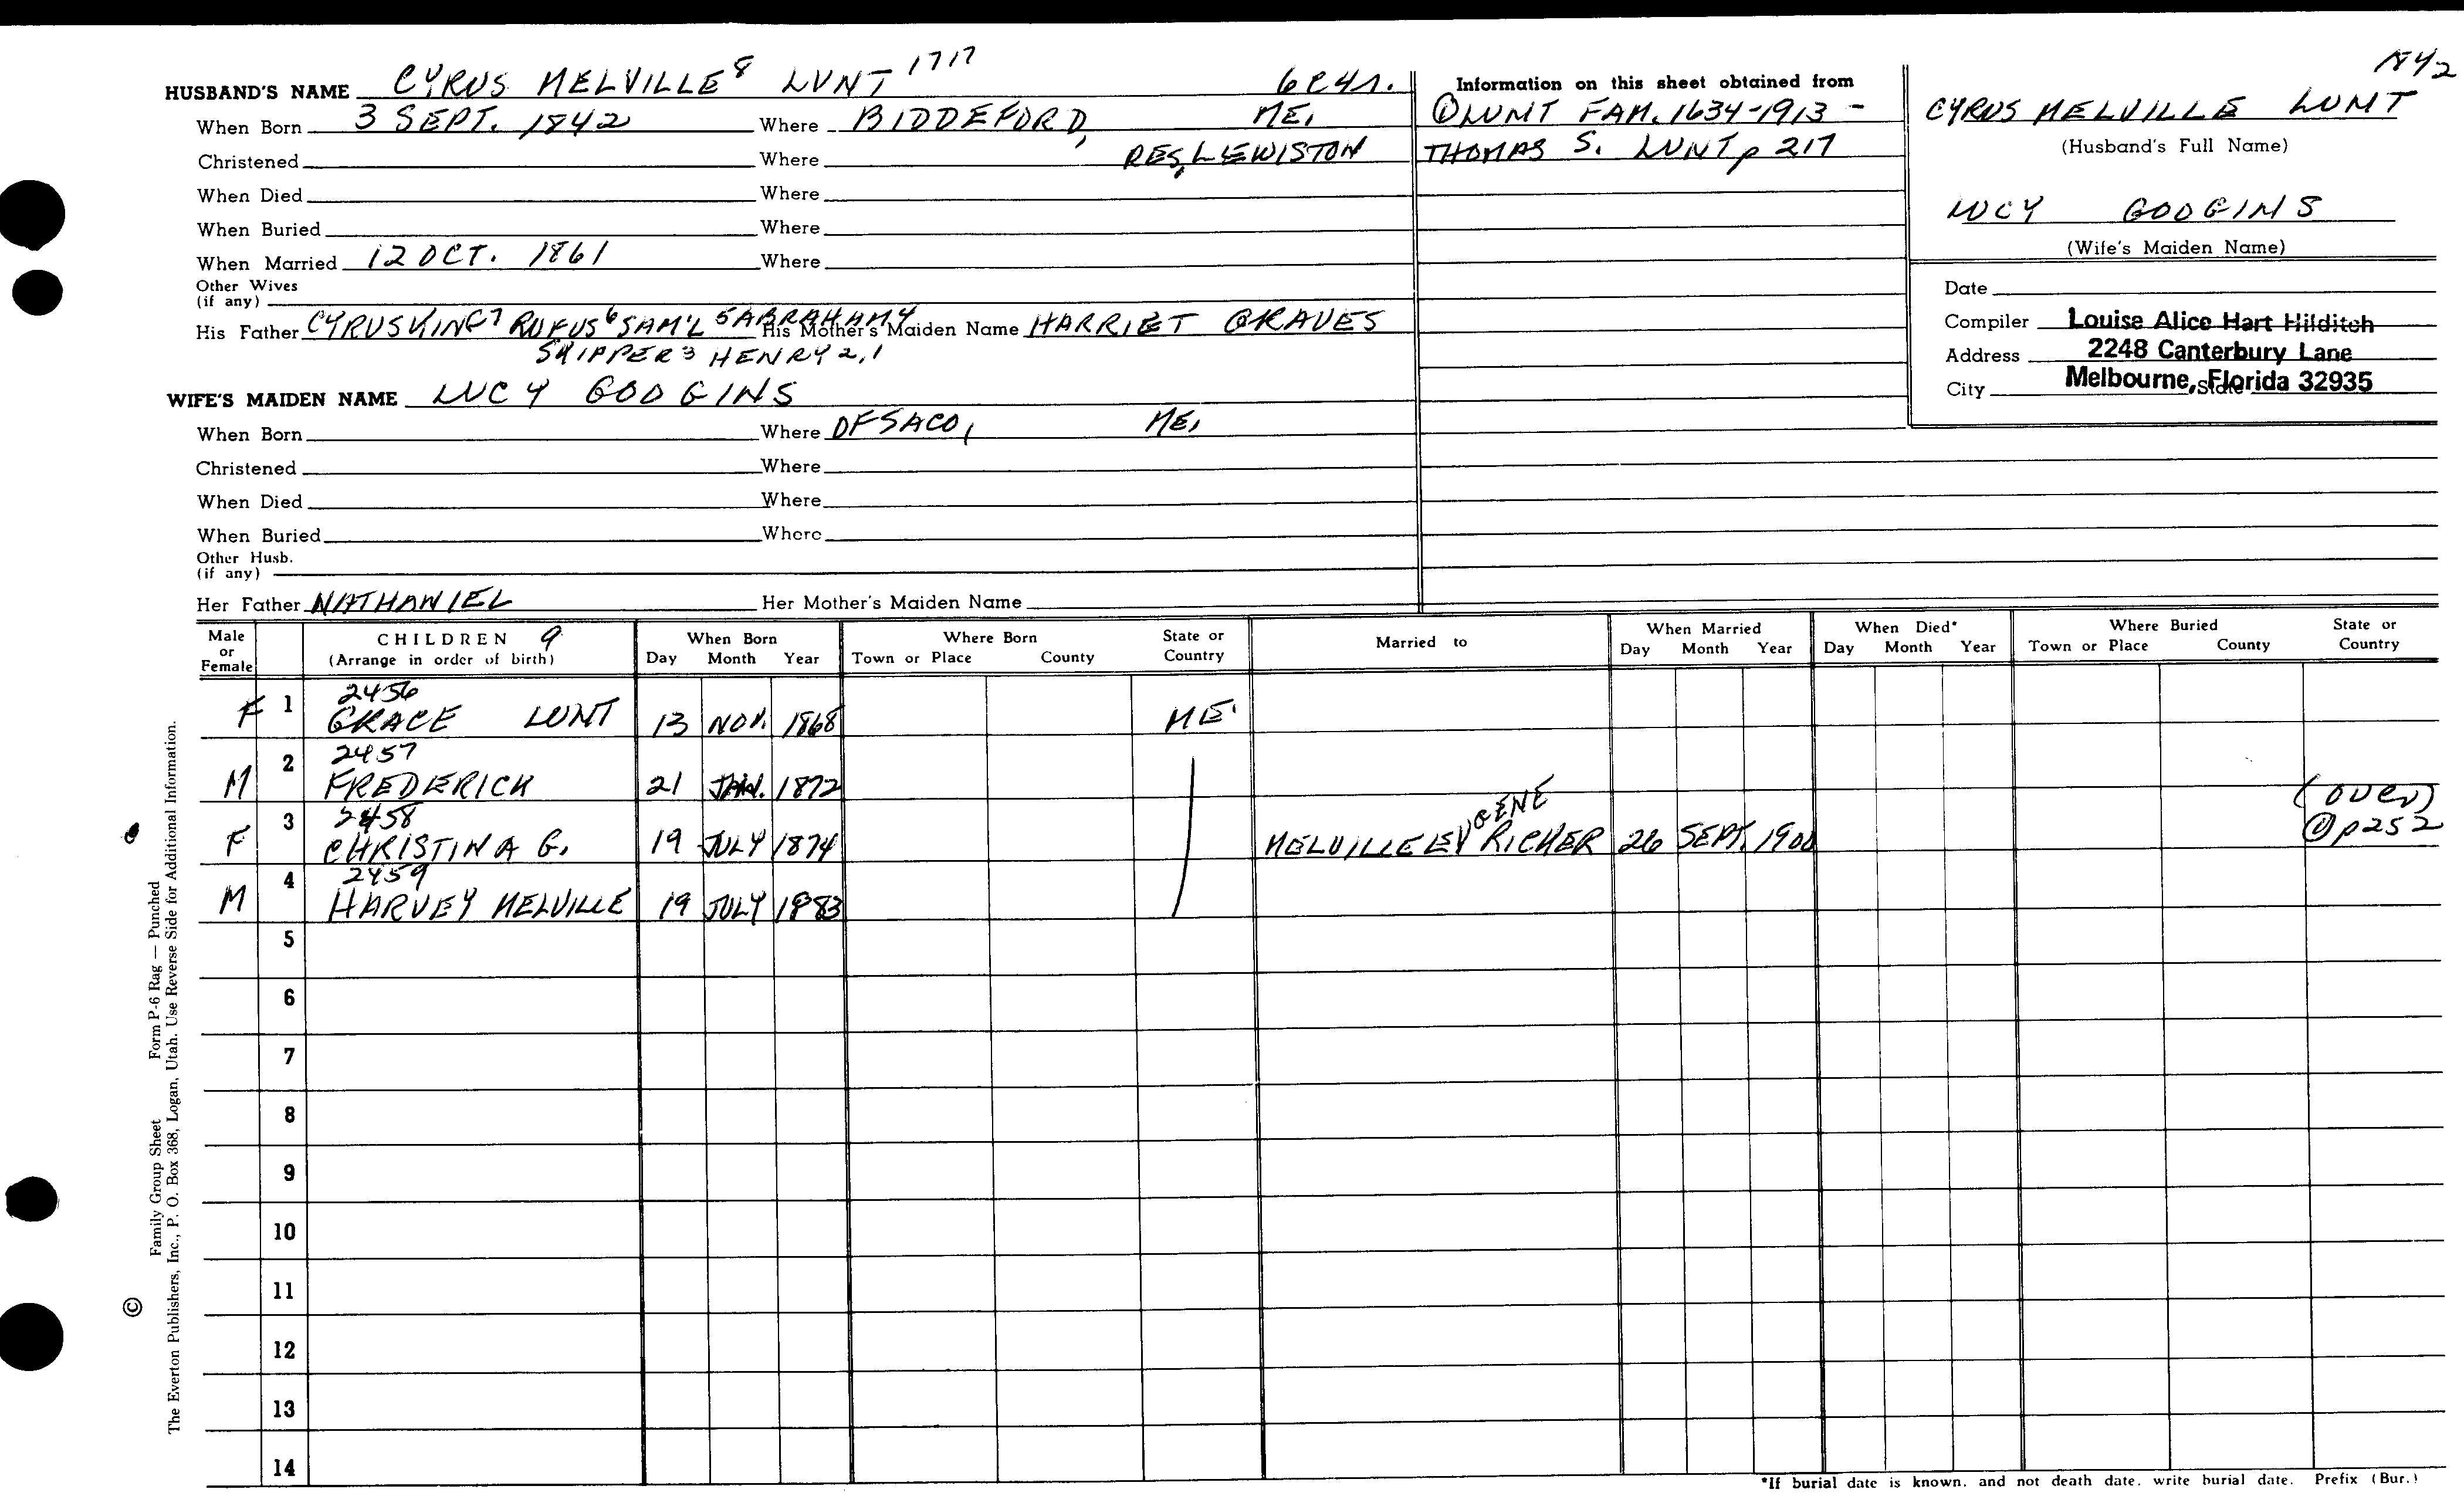 1842
HUSBAND'S NAME CYRUS MELVILLE 8 LUNT 1717
When Born 3 SEPT. 1842 Where BIDDEFORD, ME.
Christened Where RES. LEWISTON
When Died Where
When Buried Where
When Married 12 OCT. 1861 Where
Other Wives
(if any)
His Father CYRUS KING 7 RUFUS 6 SAM'L 5 ABRAHAM 4 His Mother's Maiden Name HARRIET GRAVES
SKIPPER 3 HENRY 2,1
WIFE'S MAIDEN NAME LUCY GODGINS
When Born Where OF SACO, ME.
Christened Where
When Died Where
When Buried Where
Other Husb.
(if any)
Her Father NATHANIEL Her Mother's Maiden Name
Information on this sheet obtained from
① LUNT FAM. 1634-1913 -
THOMAS S. LUNT p 217
CYRUS MELVILLE LUNT
(Husband's Full Name)
LUCY GODGINS
(Wife's Maiden Name)
Date
Compiler Louise Alice Hart Hilditch
Address 2248 Canterbury Lane
City Melbourne, Florida 32935 State
Male or Female CHILDREN 9 (Arrange in order of birth) When Born Day Month Year Where Born Town or Place County State or Country Married to When Married Day Month Year When Died* Day Month Year Where Buried Town or Place County State or Country
2456
F 1 GRACE LUNT 13 NOV. 1868 ME.
2457
M 2 FREDERICK 21 JAN. 1872
2458
F 3 CHRISTINA G. 19 JULY 1874 MELVILLE EVGENE RICKER 26 SEPT. 1900 (OVER) ① p 252
2459
M 4 HARVEY MELVILLE 19 JULY 1883
5
6
7
8
9
10
11
12
13
14
*If burial date is known, and not death date, write burial date. Prefix (Bur.)
Family Group Sheet Form P-6 Rag — Punched
© The Everton Publishers, Inc., P. O. Box 368, Logan, Utah. Use Reverse Side for Additional Information.